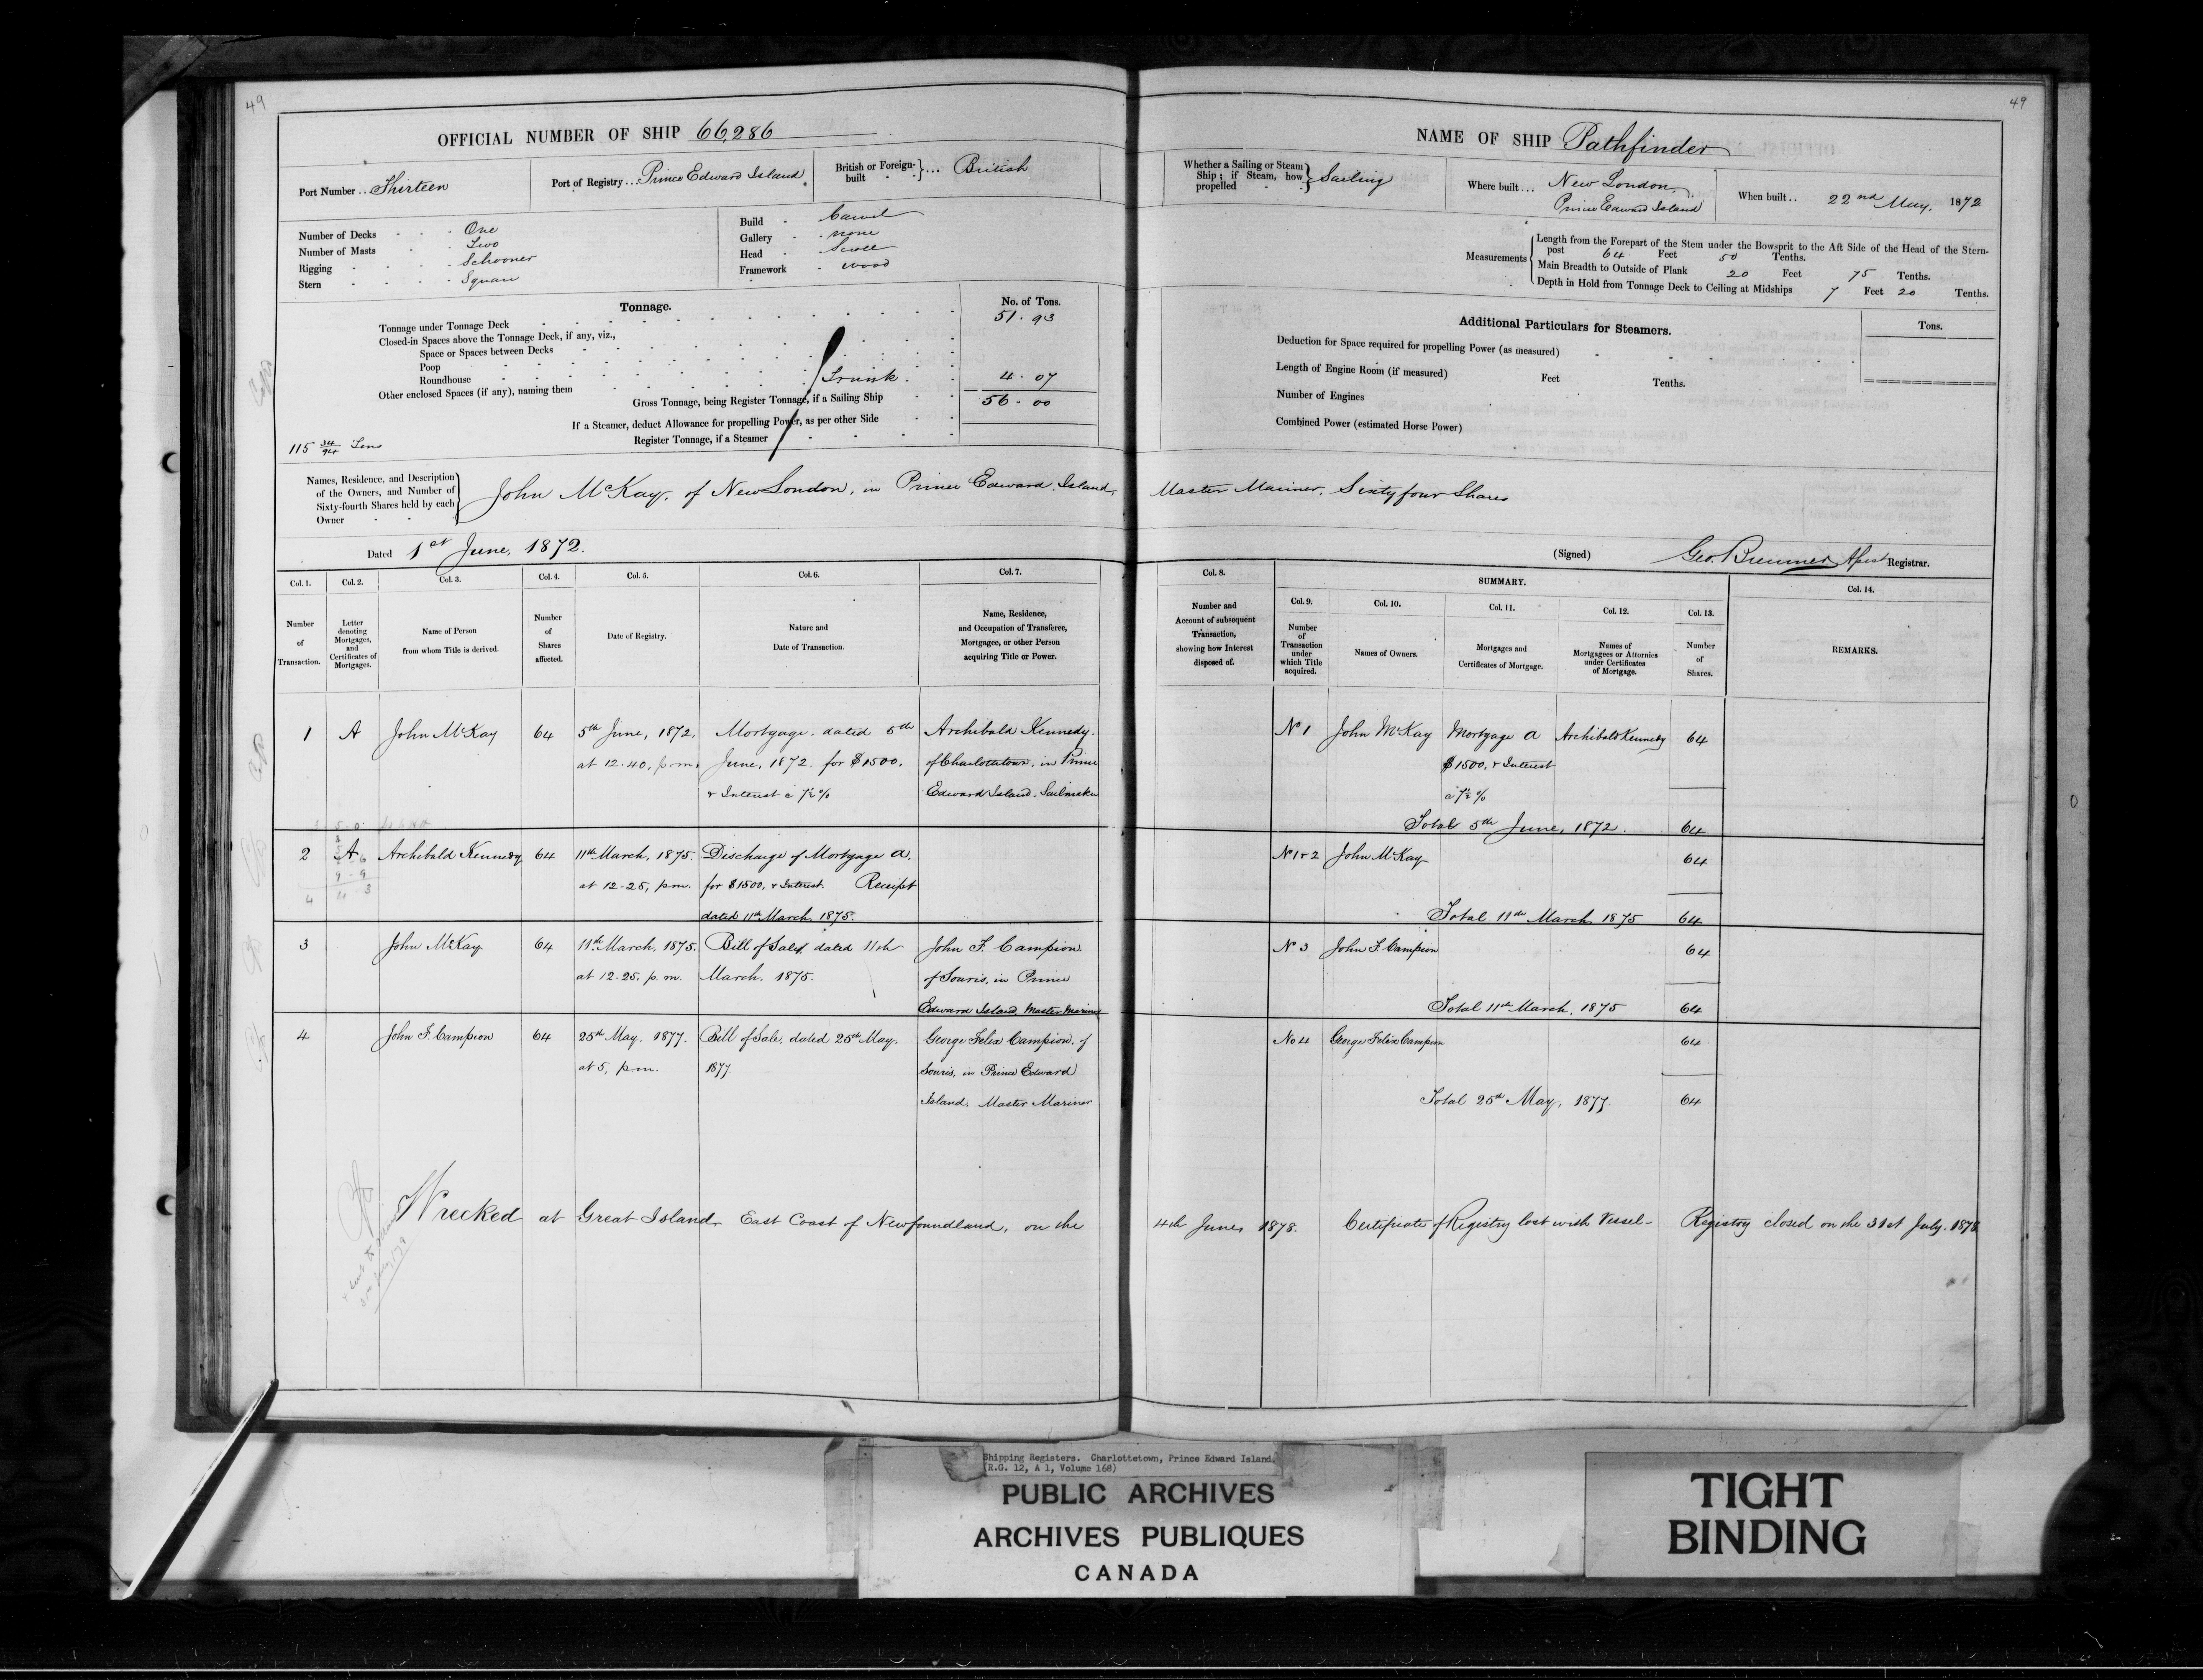 49
OFFICIAL NUMBER OF SHIP 66,286
Port Number .. Thirteen
Port of Registry ... Prince Edward Island
British or Foreign-built ... British
Number of Decks One
Number of Masts Two
Rigging Schooner
Stern Square
Build Carvel
Gallery none
Head Scroll
Framework wood
Tonnage.
No. of Tons.
Tonnage under Tonnage Deck 51.93
Closed-in Spaces above the Tonnage Deck, if any, viz.,
Space or Spaces between Decks
Poop
Roundhouse
Other enclosed Spaces (if any), naming them Trunk 4.07
Gross Tonnage, being Register Tonnage, if a Sailing Ship 56.00
If a Steamer, deduct Allowance for propelling Power, as per other Side
Register Tonnage, if a Steamer
115 34/94 Tons
Names, Residence, and Description of the Owners, and Number of Sixty-fourth Shares held by each Owner
John McKay, of New London, in Prince Edward Island,
Dated 1st June, 1872.
Col. 1. Col. 2. Col. 3. Col. 4. Col. 5. Col. 6. Col. 7.
Number of Transaction.
Letter denoting Mortgages, and Certificates of Mortgages.
Name of Person from whom Title is derived.
Number of Shares affected.
Date of Registry.
Nature and Date of Transaction.
Name, Residence, and Occupation of Transferee, Mortgagee, or other Person acquiring Title or Power.
1 A John McKay 64 5th June, 1872, Mortgage dated 5th Archibald Kennedy
at 12.40, p.m. June, 1872 for $1500, of Charlottetown, in Prince
& Interest @ 7½% Edward Island, Sailmaker
2 A Archibald Kennedy 64 11th March, 1875. Discharge of Mortgage A.
at 12-25, p.m. for $1500, & Interest. Receipt
dated 11th March, 1875.
3 John McKay 64 11th March, 1875. Bill of Sale, dated 11th John F. Campion
at 12-25, p.m. March, 1875. of Souris, in Prince
Edward Island, Master Mariner
4 John F. Campion 64 25th May, 1877. Bill of Sale, dated 25th May, George Felix Campion, of
at 5, p.m. 1877. Souris, in Prince Edward
Island. Master Mariner
Wrecked at Great Island East Coast of Newfoundland, on the
49
NAME OF SHIP Pathfinder
Whether a Sailing or Steam Ship; if Steam, how propelled Sailing
Where built ... New London, Prince Edward Island
When built .. 22nd May, 1872
Measurements
Length from the Forepart of the Stem under the Bowsprit to the Aft Side of the Head of the Stern-
post 64 Feet 50 Tenths.
Main Breadth to Outside of Plank 20 Feet 75 Tenths.
Depth in Hold from Tonnage Deck to Ceiling at Midships 7 Feet 20 Tenths.
Additional Particulars for Steamers.
Tons.
Deduction for Space required for propelling Power (as measured)
Length of Engine Room (if measured) Feet Tenths.
Number of Engines
Combined Power (estimated Horse Power)
Master Mariner, Sixty four Shares
(Signed) Registrar.
Col. 8. SUMMARY. Col. 14.
Col. 9. Col. 10. Col. 11. Col. 12. Col. 13.
Number and Account of subsequent Transaction, showing how Interest disposed of.
Number of Transaction under which Title acquired.
Names of Owners.
Mortgages and Certificates of Mortgage.
Names of Mortgagees or Attornies under Certificates of Mortgage.
Number of Shares.
REMARKS.
No 1 John McKay Mortgage A Archibald Kennedy 64
$1500, & Interest
@ 7½ %
Total 5th June, 1872. 64
No 1 & 2 John McKay 64
Total 11th March 1875 64
No 3 John F. Campion 64
Total 11th March, 1875 64
No 4 George Felix Campion 64
Total 25th May, 1877 64
4th June, 1878. Certificate of Registry lost with Vessel - Registry closed on the 31st July, 1878
Shipping Registers. Charlottetown, Prince Edward Island.
(R.G. 12, A 1, Volume 168)
PUBLIC ARCHIVES
ARCHIVES PUBLIQUES
CANADA
TIGHT
BINDING